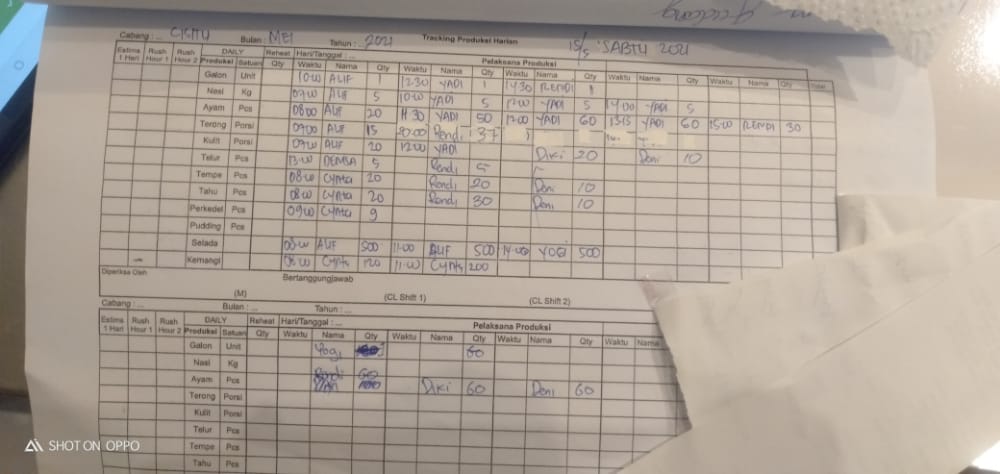 Cabang : ... CISITU Bulan : MEI Tahun : .. 2021 Tracking Produksi Harian 15/5 'SABTU 2021
Estima 1 Hari Rush Hour 1 Rush Hour 2 DAILY Reheat Hari/Tanggal : ... Pelaksana Produksi
Produksi Satuan Qty Waktu Nama Qty Waktu Nama Qty Waktu Nama Qty Waktu Nama Qty Waktu Nama Qty Total
Galon Unit 10.00 ALIF 1 12.30 YADI 1 14.30 RENDI 1
Nasi Kg 07.00 ALIF 5 10.00 YADI 5 12.00 YADI 5 14.00 YADI 5
Ayam Pcs 08.00 ALIF 20 11.30 YADI 50 12.00 YADI 60 13.15 YADI 60 15.00 RENDI 30
Terong Porsi 07.00 ALIF 15 Rendi 37
Kulit Porsi 07.00 ALIF 20 12.00 YADI Diki 20 Deni 10
Telur Pcs 13.00 5 Rendi 5
Tempe Pcs 08.00 Cynta 20 Rendi 20 Deni 10
Tahu Pcs 08.00 Cynta 20 Rendi 30 Deni 10
Perkedel Pcs 09.00 Cynta 9
Pudding Pcs
Selada 08.00 ALIF 500 11.00 ALIF 500 14.00 YOGI 500
Kemangi 08.00 Cynta 120 11.00 Cynta 200
Diperiksa Oleh Bertanggungjawab
(M) (CL Shift 1) (CL Shift 2)
Cabang : ... Bulan : ... Tahun : ...
Estima 1 Hari Rush Hour 1 Rush Hour 2 DAILY Reheat Hari/Tanggal : ... Pelaksana Produksi
Produksi Satuan Qty Waktu Nama Qty Waktu Nama Qty Waktu Nama Qty Waktu Nama
Galon Unit Yogi 60
Nasi Kg
Ayam Pcs Rendi 60 Diki 60 Deni 60
Terong Porsi
Kulit Porsi
Telur Pcs
Tempe Pcs
Tahu Pcs
SHOT ON OPPO